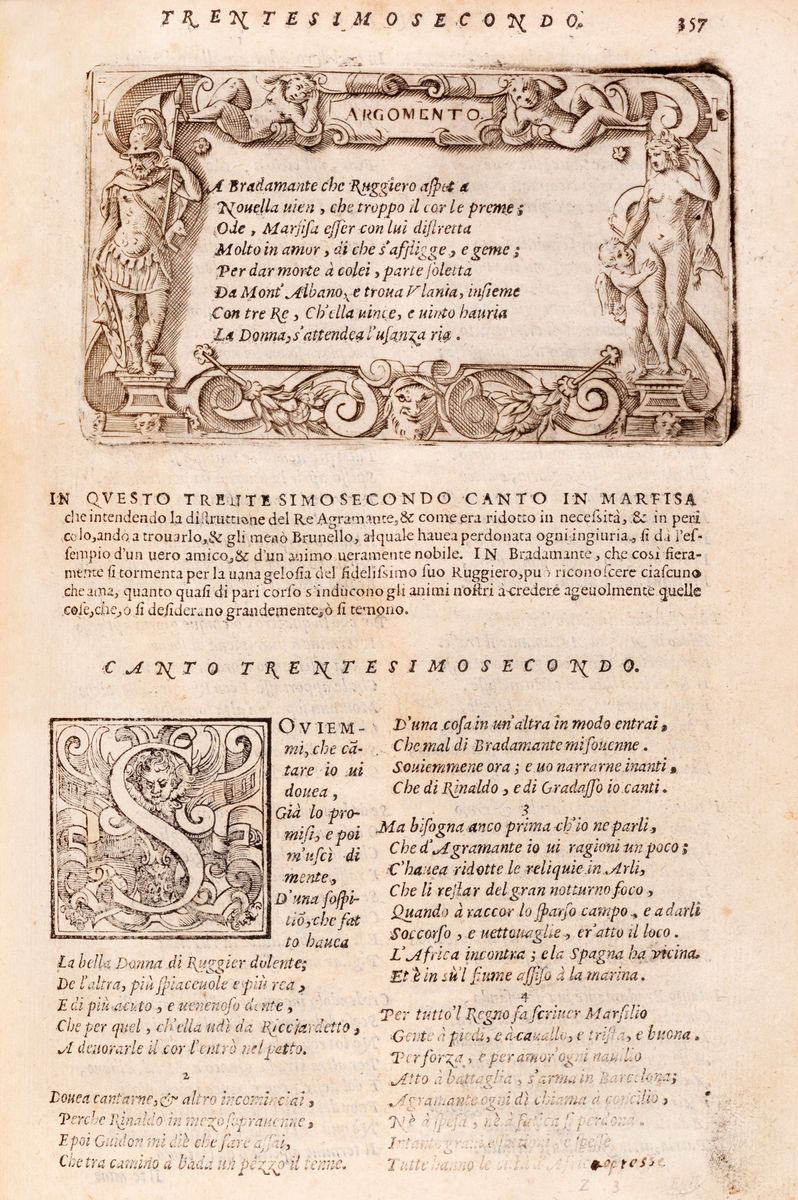 TRENTESIMOSECONDO. 357
ARGOMENTO.
A Bradamante che Ruggiero aſpet a
Nouella uien, che troppo il cor le preme;
Ode, Marfiſa eſſer con lui diſtretta
Molto in amor, di che s'affligge, e geme;
Per dar morte à colei, parte ſoletta
Da Mont' Albano, e troua Vlania, inſieme
Con tre Re, Ch'ella uince, e uinto hauria
La Donna, s'attendea l'uſanza ria.
IN QVESTO TRENTESIMOSECONDO CANTO IN MARFISA
che intendendo la diſtruttione del Re Agramante, & come era ridotto in neceſſità, & in peri
colo, andò a trouarlo, & gli menò Brunello, alquale hauea perdonata ogni ingiuria, ſi dà l'eſ-
ſempio d'un uero amico, & d'un animo ueramente nobile. IN Bradamante, che così fiera-
mente ſi tormenta per la uana geloſia del fideliſſimo ſuo Ruggiero, può riconoſcere ciaſcuno
che ama, quanto quaſi di pari corſo s'inducono gli animi noſtri à credere ageuolmente quelle
coſe, che, o ſi deſiderano grandemente, ò ſi temono.
CANTO TRENTESIMOSECONDO.
SOVIEM-
mi, che cã-
tare io ui
douea,
Già lo pro-
miſi, e poi
m'uſcì di
mente,
D'una ſoſpi-
tiõ, che fat
to hauea
La bella Donna di Ruggier dolente;
De l'altra, più ſpiaceuole e più rea,
E di più acuto, e uenenoſo dente,
Che per quel, ch'ella udì da Ricciardetto,
A deuorarle il cor l'entrò nel petto.
2
Douea cantarne, & altro incominciai,
Perche Rinaldo in mezo ſoprauenne,
E poi Guidon mi diè che fare aſſai,
Che tra camino à bada un pezzo il tenne.
D'una coſa in un'altra in modo entrai,
Che mal di Bradamante mi ſouenne.
Souiemmene ora; e uo narrarne inanti,
Che di Rinaldo, e di Gradaſſo io canti.
3
Ma biſogna anco prima ch'io ne parli,
Che d'Agramante io ui ragioni un poco;
C'hauea ridotte le reliquie in Arli,
Che li reſtar del gran notturno foco,
Quando à raccor lo ſparſo campo, e a darli
Soccorſo, e uettouaglie, er'atto il loco.
L'Africa incontra; e la Spagna ha vicina.
Et è in sù'l fiume aſſiſo à la marina.
4
Per tutto'l Regno fa ſcriuer Marſilio
Gente à piedi, e à cauallo, e triſta, e buona.
Per forza, e per amor ogni nauilio
Atto à battaglia, s'arma in Barcelona;
Agramante ogni dì chiama à concilio,
Nè à ſpeſa, nè à fatica ſi perdona.
Intanto
Tutte hanno le città d'Africa oppresse
Z 3